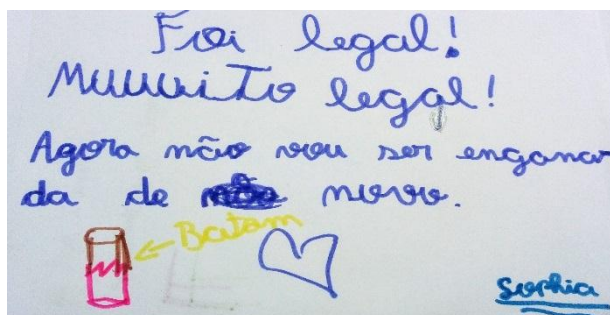 Foi legal!
Muuuito legal!
Agora não vou ser engana
da de novo.
Batom
Sophia